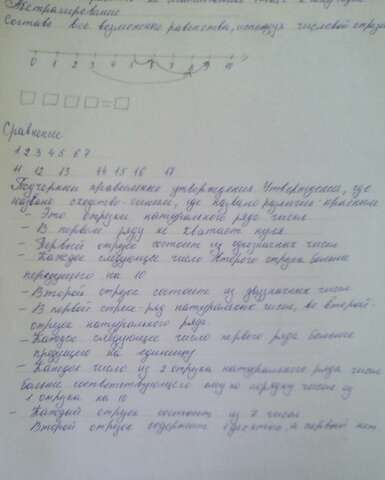 Абстрагирование
Составь все возможные равенства, используя числовой отрезок
1 2 3 4 5 6 7 8 9 10
□ □ □ □ = □
Сравнение
1 2 3 4 5 6 7
11 12 13 14 15 16 17
Подчеркни правильные утверждения. Утверждения, где
названо сходство-синим, где названо различие-красным
- Это отрезки натурального ряда чисел
- В первом ряду не хватает нуля
- Первый отрезок состоит из однозначных чисел
- Каждое следующее число второго отрезка больше
предыдущего на 10
- Второй отрезок состоит из двузначных чисел
- В первой строке-ряд натуральных чисел, во второй-
отрезок натурального ряда.
- Каждое следующее число первого ряда больше
предыдущего на единицу
- Каждое число из 2 отрезка натурального ряда чисел
больше соответствующего ему по порядку числа из
1 отрезка на 10
- Каждый отрезок состоит из 7 чисел
Второй отрезок содержит, а первый нет.